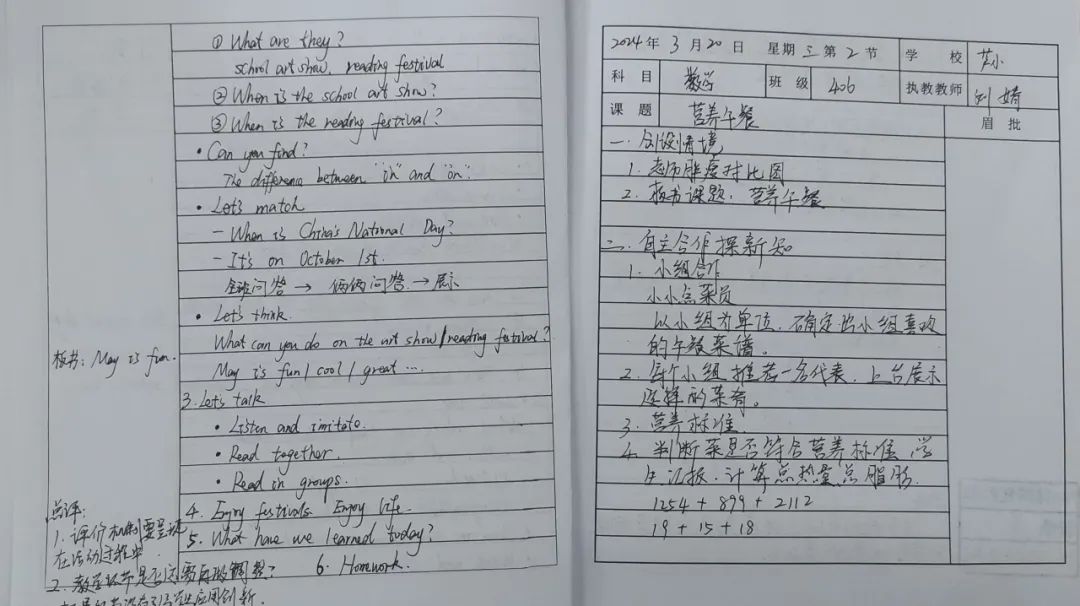 ① What are they?
school art show, reading festival
② When is the school art show?
③ When is the reading festival?
• Can you find?
The difference between "in" and "on".
• Let's match
- When is China's National Day?
- It's on October 1st.
全班问答 → 俩俩问答 → 展示
• Let's think.
What can you do on the art show/reading festival?
板书: May is fun.
May is fun / cool / great ...
3. Let's talk
• Listen and imitate.
• Read together.
• Read in groups.
4. Enjoy festivals Enjoy life.
5. What have we learned today?
6. Homework.
点评:
1. 评价机制要呈现
在活动过程中.
2. 教学环节是否需要再做调整?
2024年 3月20日 星期三第2节 学校
科目 数学 班级 406 执教教师 刘婧
课题 营养午餐 眉批
一. 创设情境
1. 老师胖瘦对比图
2. 板书课题: 营养午餐
二. 自主合作探新知
1. 小组合作
小小点菜员
以小组为单位, 确定出小组喜欢
的午餐菜谱。
2. 每个小组推荐一名代表, 上台展示
选择的菜肴。
3. 营养标准.
4. 判断菜是否符合营养标准 学
生汇报. 计算总热量 总脂肪.
1254 + 899 + 2112
19 + 15 + 18